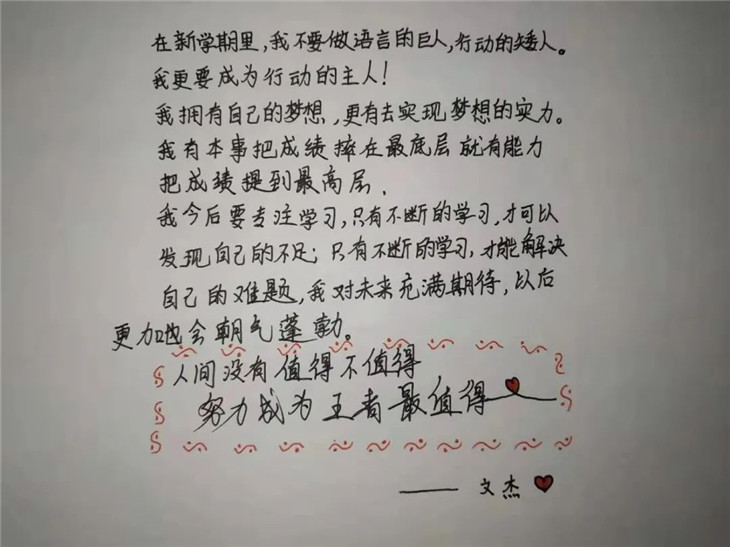 在新学期里,我不要做语言的巨人,行动的矮人。
我更要成为行动的主人!
我拥有自己的梦想,更有去实现梦想的实力。
我有本事把成绩摔在最底层就有能力
把成绩提到最高层、
我今后要专注学习,只有不断的学习,才可以
发现自己的不足;只有不断的学习,才能解决
自己的难题,我对未来充满期待,以后
更加会朝气蓬勃。
人间没有值得不值得
努力成为王者最值得
—— 文杰